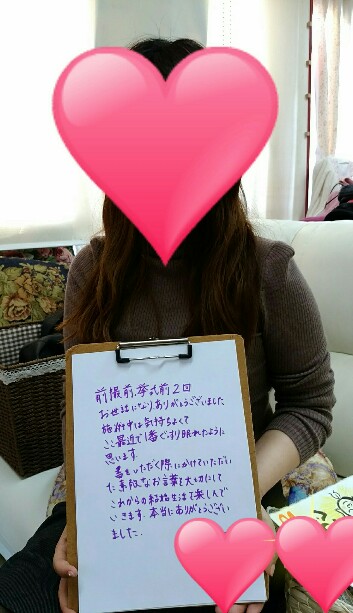 前撮前、挙式前2回
お世話になりありがとうございました
施術中は気持ちよくて
ここ最近で1番ぐっすり眠れたように
思います。
書をいただく際にかけていただい
た素敵なお言葉を大切にして
これからの結婚生活を楽しんで
いきます。本当にありがとうござい
ました。